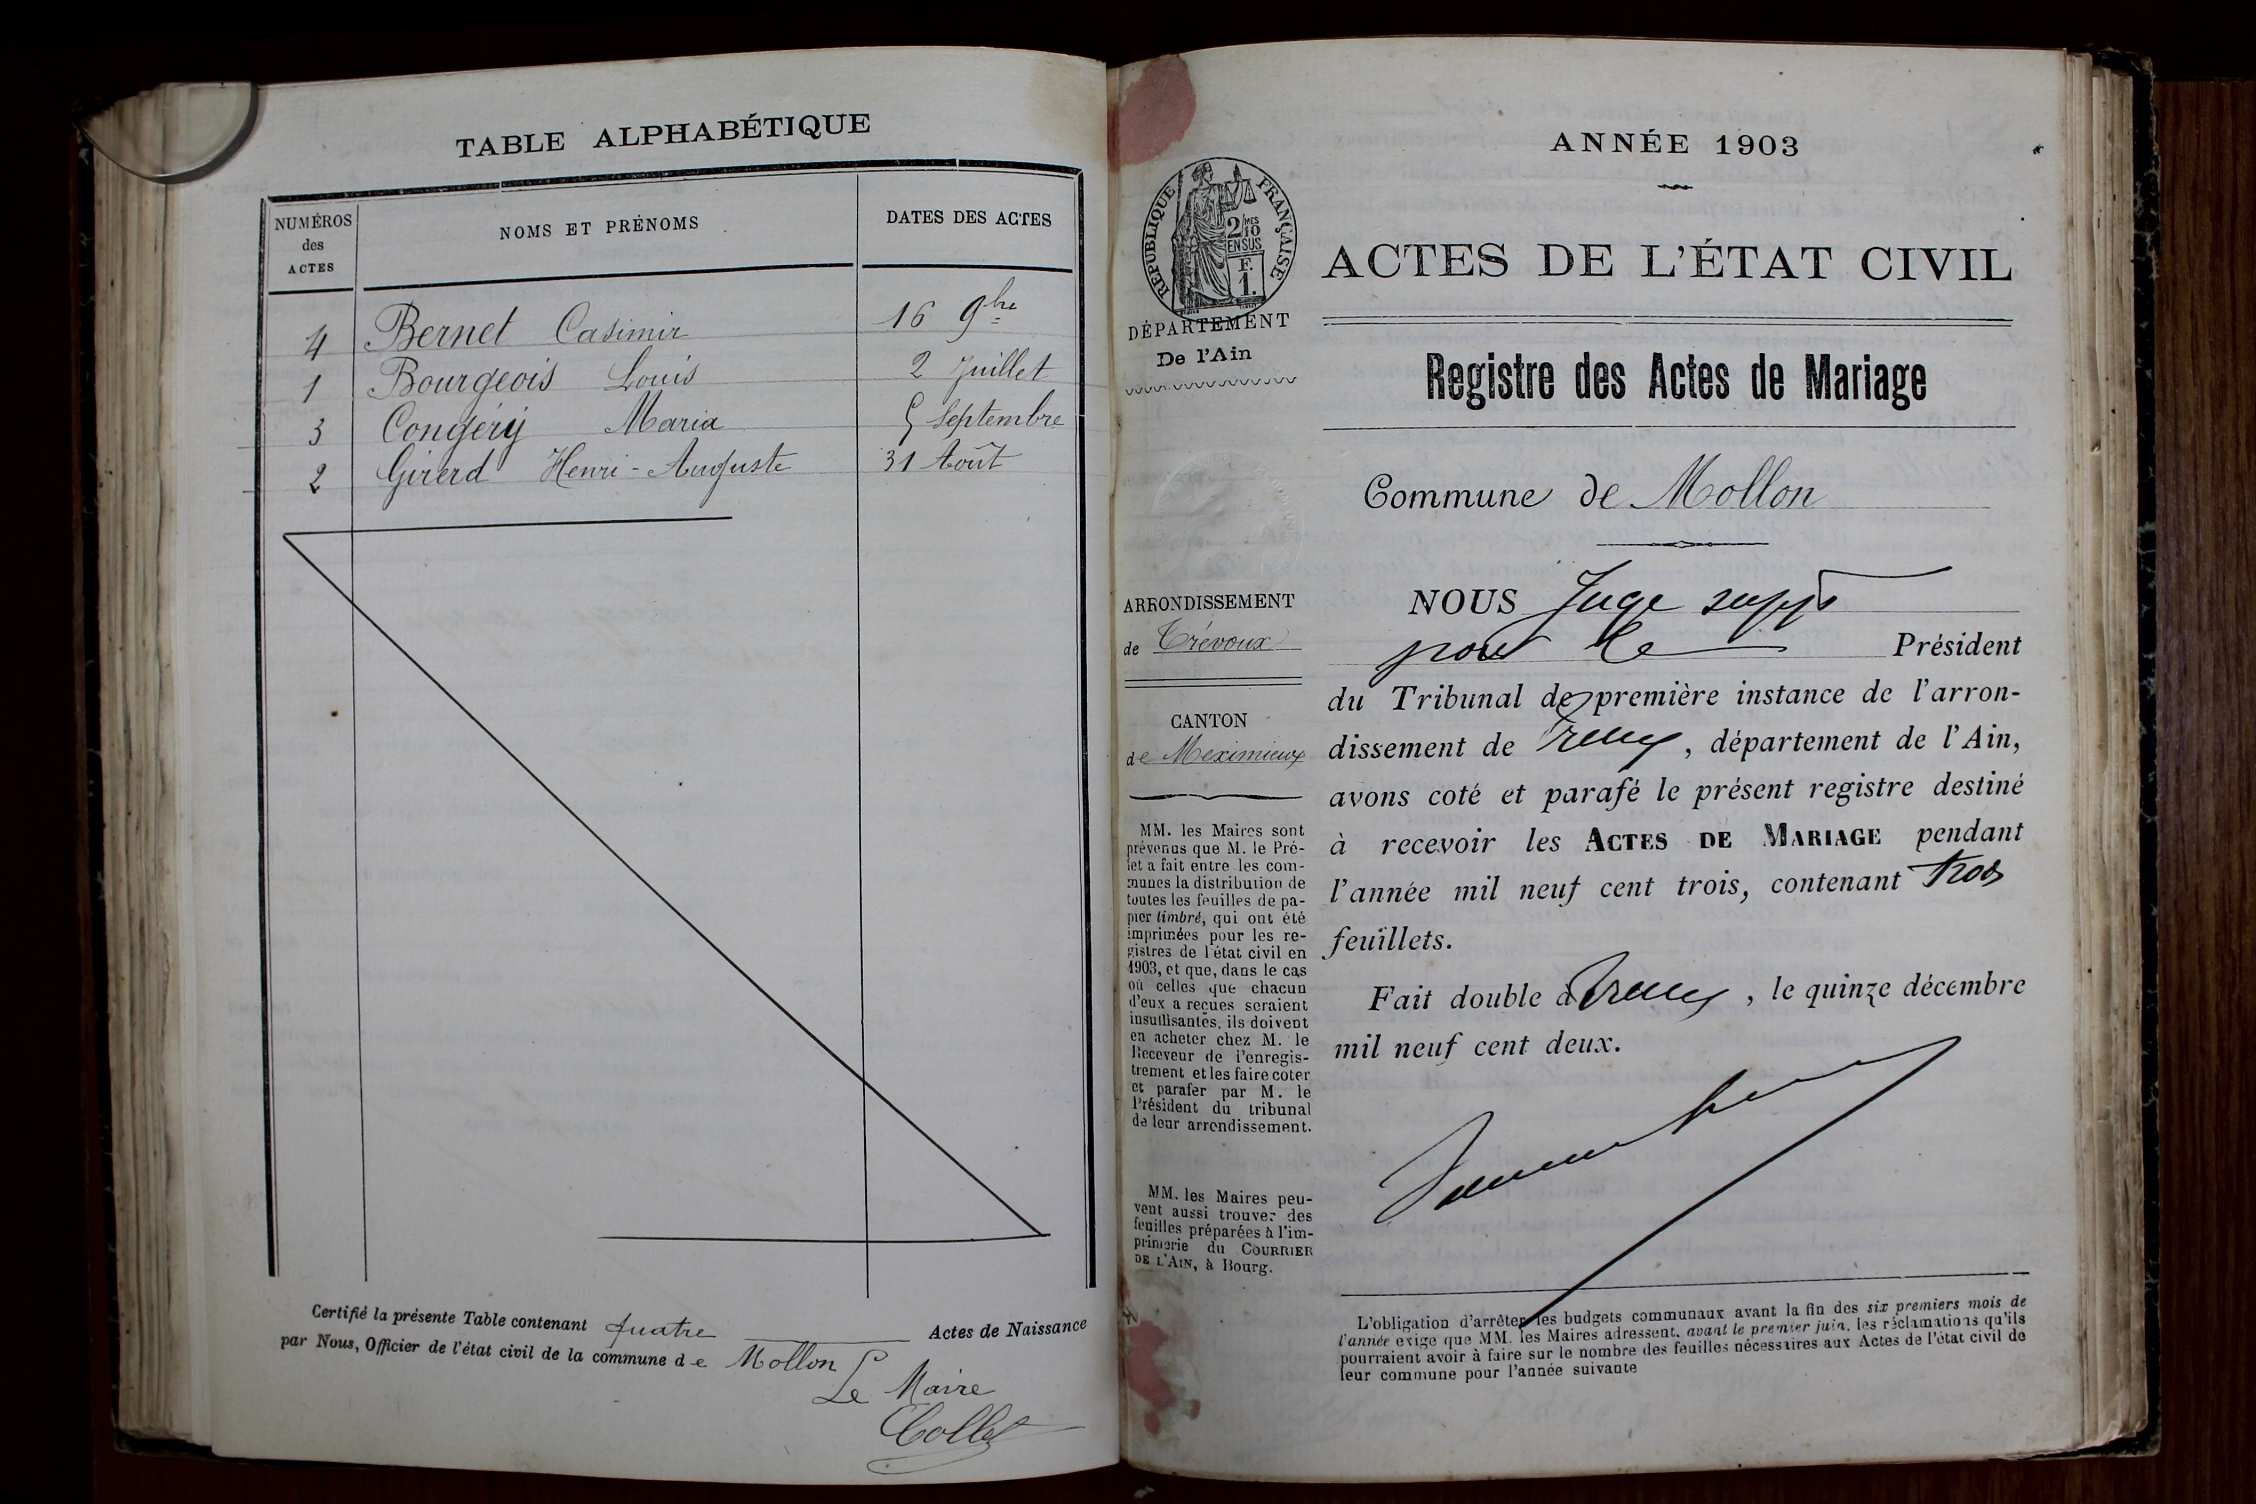 TABLE ALPHABÉTIQUE
NUMÉROS
des
ACTES
NOMS ET PRÉNOMS
DATES DES ACTES
4 Bernet Casimir 16 9bre
1 Bourgeois Louis 2 Juillet
3 Congéry Maria 5 Septembre
2 Girerd Henri-Auguste 31 Août
Certifié la présente Table contenant quatre Actes de Naissance
par Nous, Officier de l'état civil de la commune de Mollon
Le Maire
Collet
RÉPUBLIQUE FRANÇAISE
2/10 MES
EN SUS
F.
1.
DÉPARTEMENT
De l'Ain
ARRONDISSEMENT
de Trévoux
CANTON
de Meximieux
MM. les Maires sont
prévenus que M. le Pré-
fet a fait entre les com-
munes la distribution de
toutes les feuilles de pa-
pier timbré, qui ont été
imprimées pour les re-
gistres de l'état civil en
1903, et que, dans le cas
où celles que chacun
d'eux a reçues seraient
insuffisantes, ils doivent
en acheter chez M. le
Receveur de l'enregis-
trement et les faire coter
et parafer par M. le
Président du tribunal
de leur arrondissement.
MM. les Maires peu-
vent aussi trouver des
feuilles préparées à l'im-
primerie du COURRIER
DE L'AIN, à Bourg.
ANNÉE 1903
ACTES DE L'ÉTAT CIVIL
Registre des Actes de Mariage
Commune de Mollon
NOUS Juge suppt
pour le Président
du Tribunal de première instance de l'arron-
dissement de , département de l'Ain,
avons coté et parafé le présent registre destiné
à recevoir les ACTES DE MARIAGE pendant
l'année mil neuf cent trois, contenant trois
feuillets.
Fait double à , le quinze décembre
mil neuf cent deux.
L'obligation d'arrêter les budgets communaux avant la fin des six premiers mois de
l'année exige que MM. les Maires adressent, avant le premier juin, les réclamations qu'ils
pourraient avoir à faire sur le nombre des feuilles nécessaires aux Actes de l'état civil de
leur commune pour l'année suivante